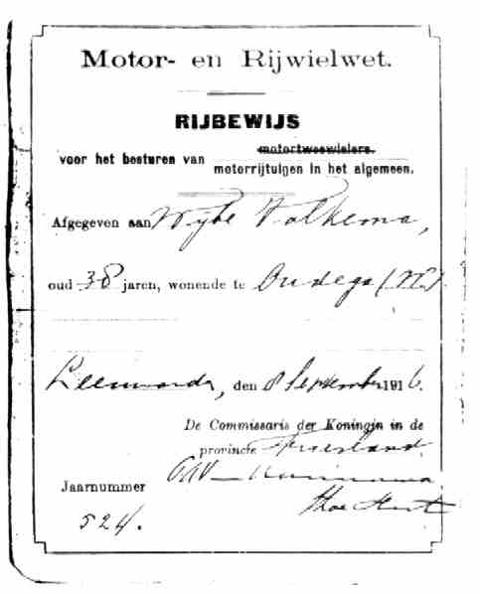 Motor- en Rijwielwet.
RIJBEWIJS
motortweewielers.
voor het besturen van
motorrijtuigen in het algemeen.
Afgegeven aan Wybe Folkema,
oud 38 jaren, wonende te Oudega (W.)
Leeuwarden, den 8 September 1916.
De Commissaris der Koningin in de
provincie Friesland,
Jaarnummer
524.